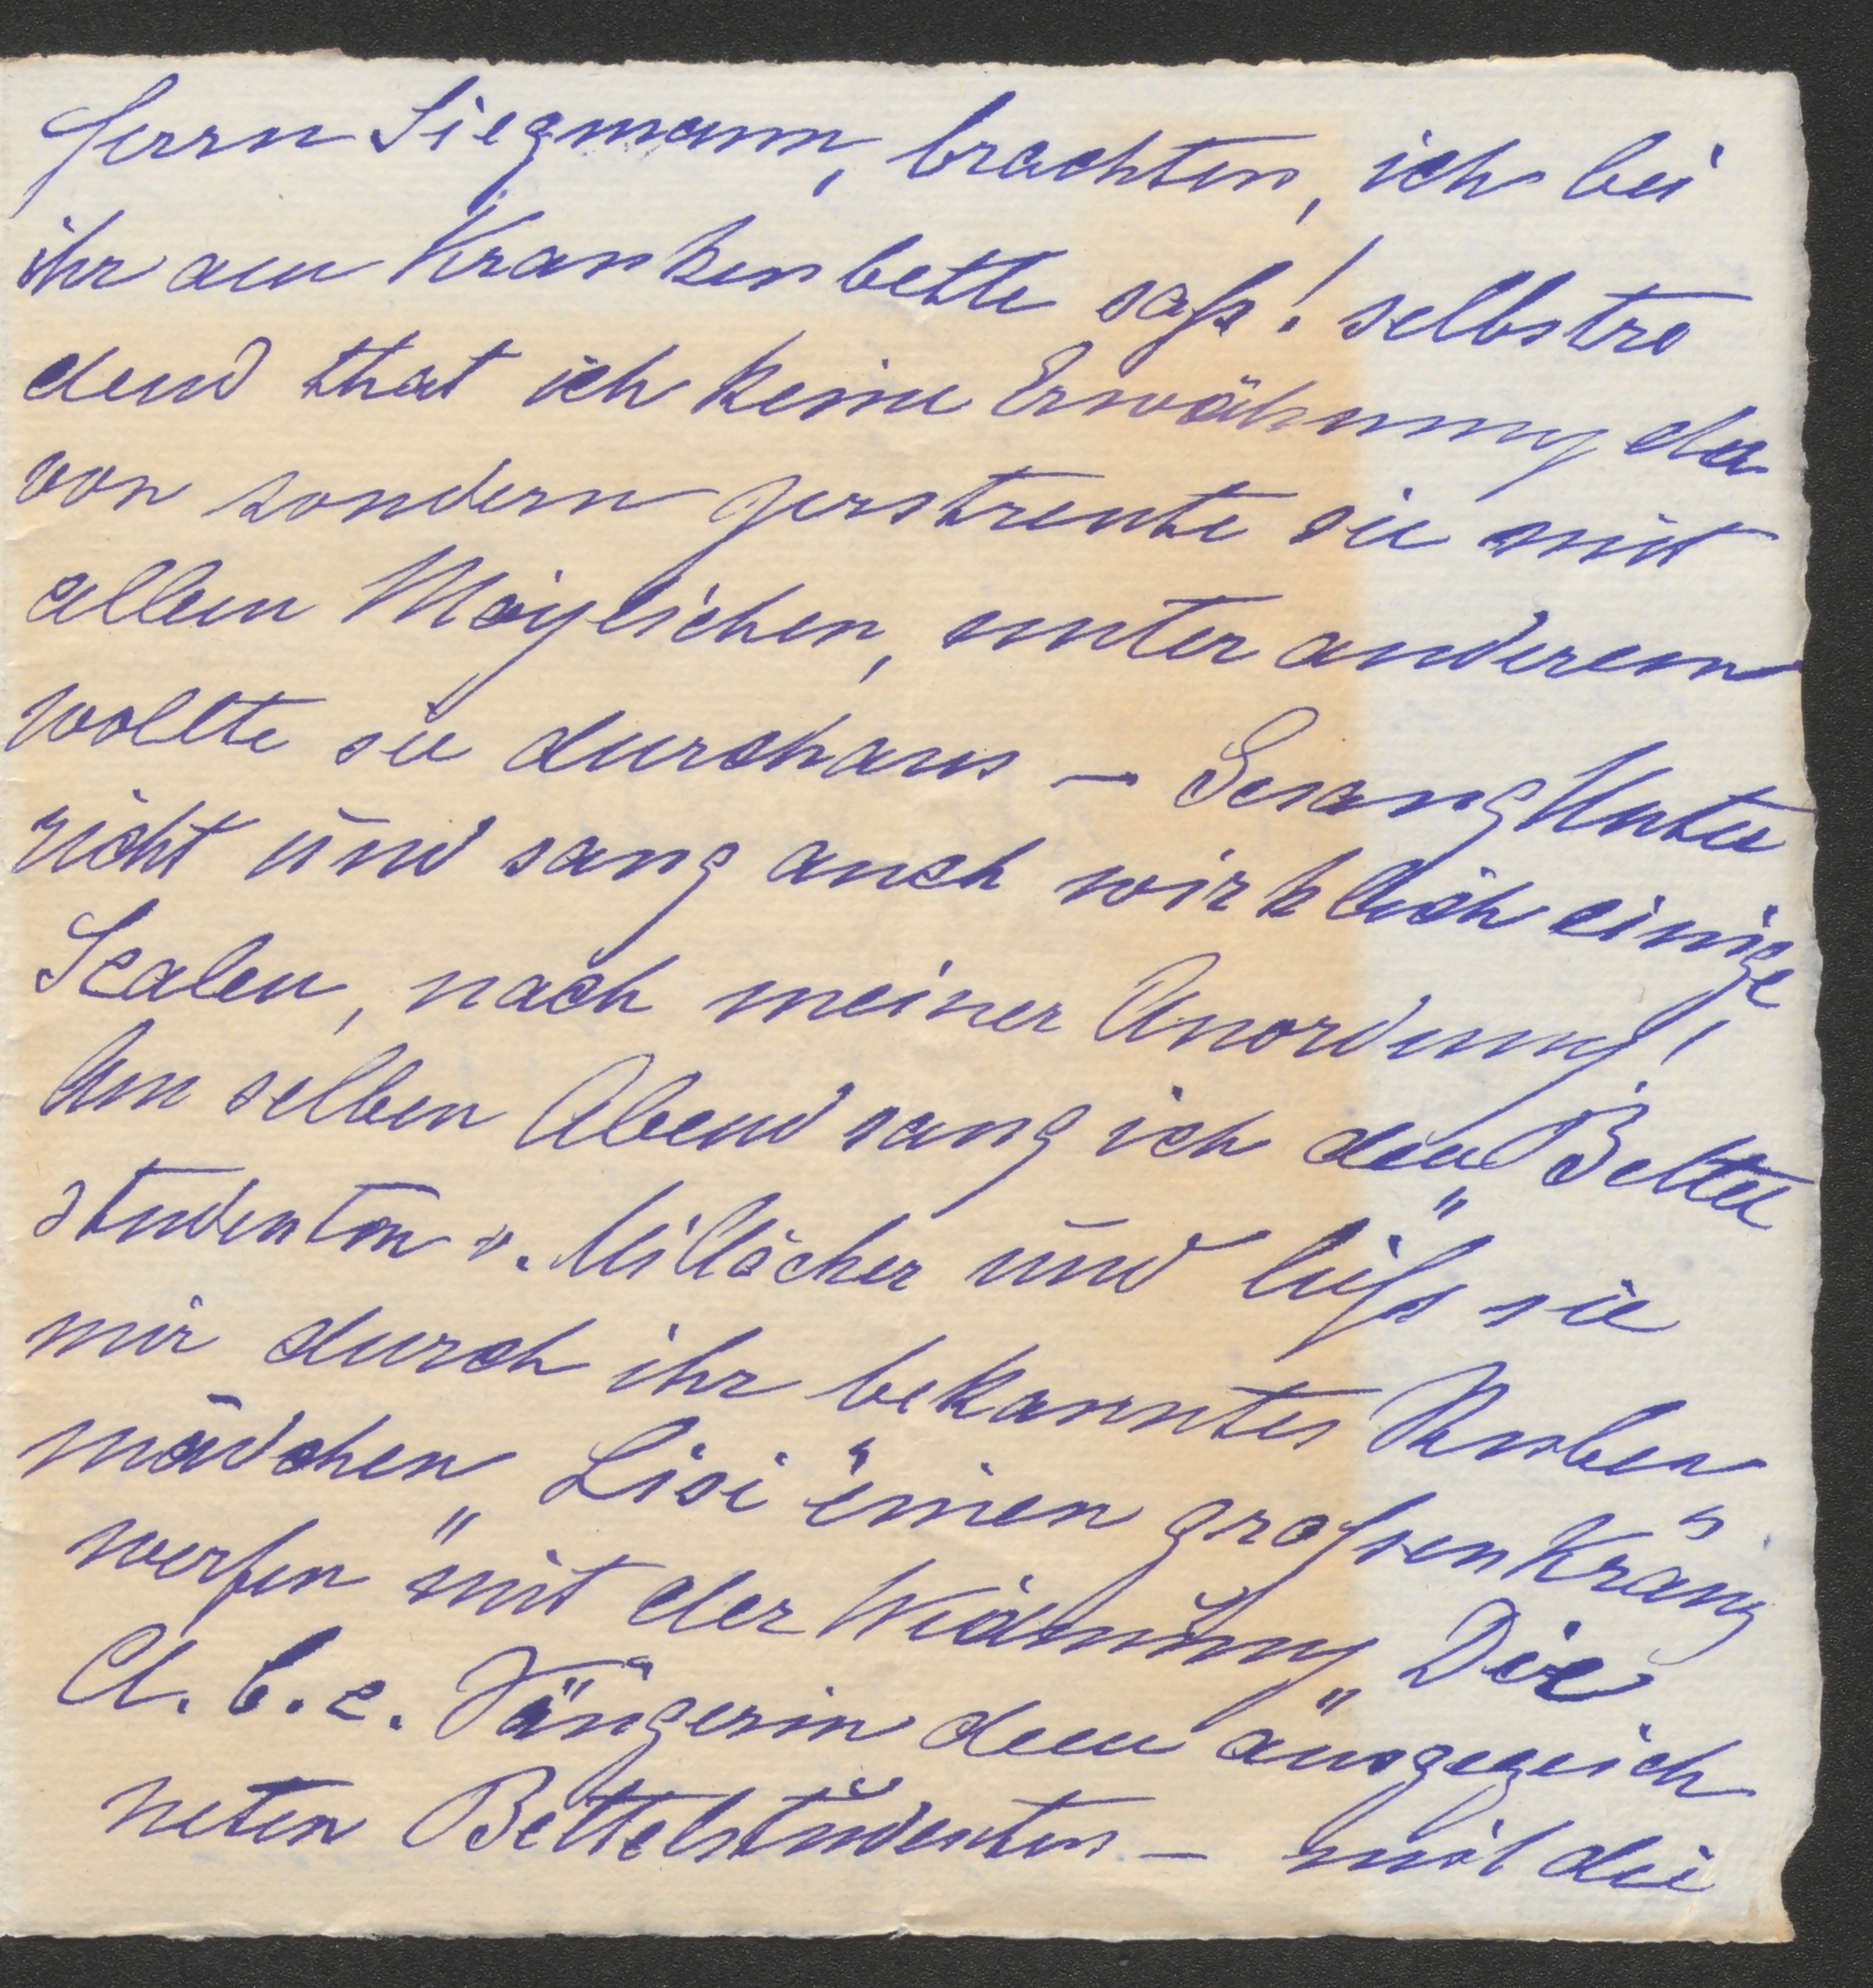 Herrn Siegmann, brachten, ich bei
ihr am Krankenbette saß! selbstre
dend that ich keine Erwähnung da
von sondern zerstreute sie mit
allem Möglichen, unter anderem
wollte sie durchaus – Gesang Unter
richt und sang auch wirklich einige
Scalen, nach meiner Anordnung!
Am selben Abend sang ich den Bettel
studenten v. Millöcker und ließ sie
mir durch ihr bekanntes
mädchen „Lisi" einen großen Kranz
werfen" mit der Widmung „Die
A. b. c. Sängerin" dem ausgezeich
neten Bettelstudenten – mit die